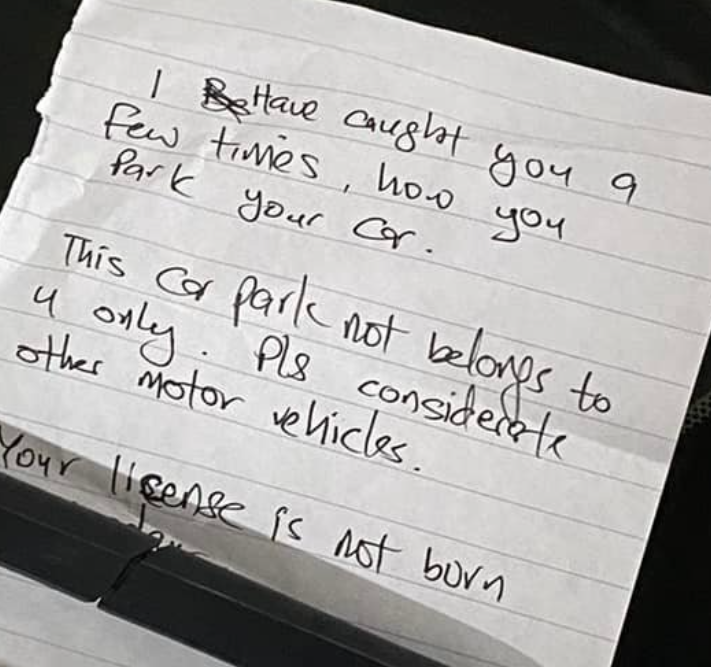 I Have caught you a
few times, how you
Park your car.
This car park not belongs to
u only. Pls considerate
other motor vehicles.
Your license is not born